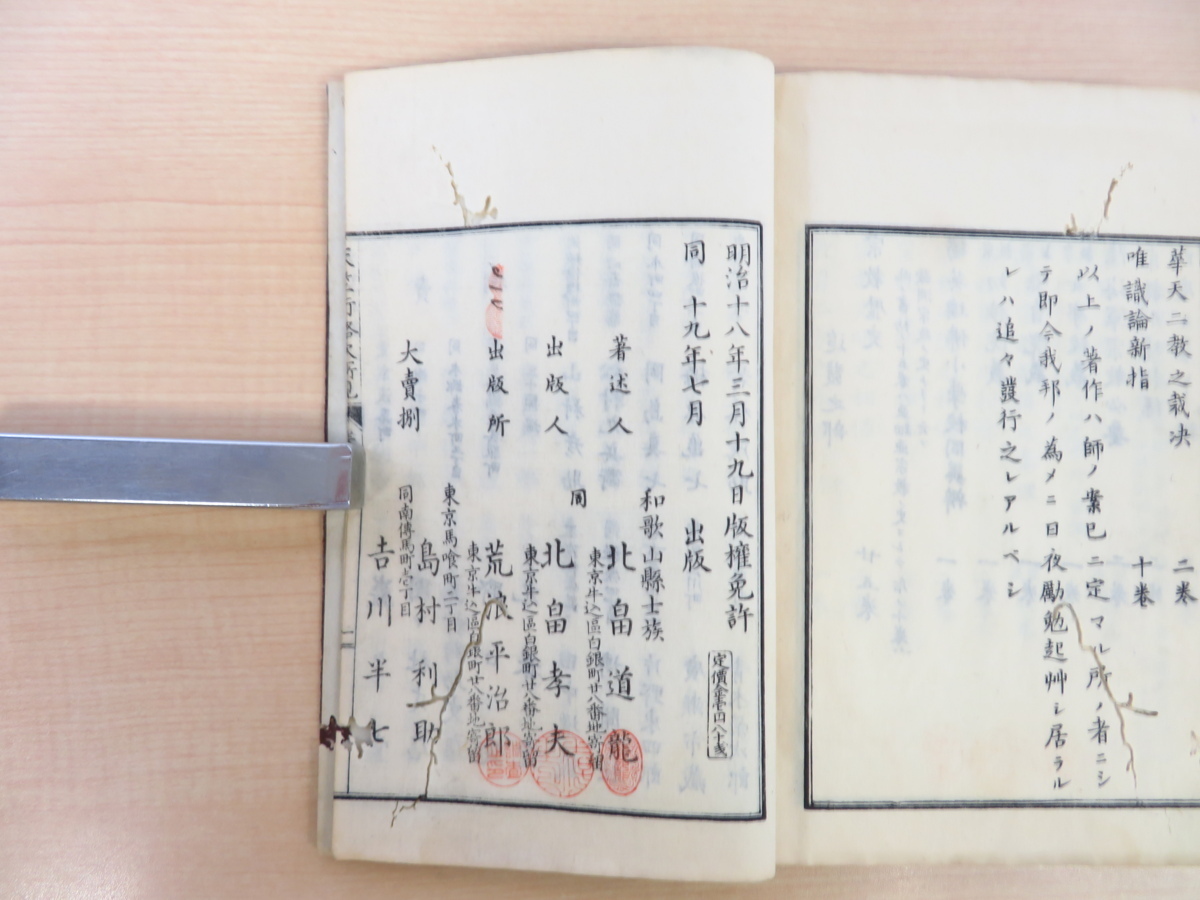 華天二教之裁决 二巻
唯識論新指 十巻
以上ノ著作ハ師ノ業已ニ定マル所ノ者ニシ
テ即今我邦ノ為メニ日夜勵勉起艸シ居ラル
レハ追々發行之レアルベシ
明治十八年三月十九日版權免許
同 十九年七月 出版
定價金壱円八十戔
和歌山縣士族
著述人 北畠道龍
東京牛込區白銀町廿八番地寄留
同
出版人 北畠孝夫
東京牛込區白銀町廿八番地寄留
出版所 荒浪平治郎
東京牛込區白銀町廿八番地寄留
東京馬喰町二丁目
大賣捌 島村利助
同南傳馬町壱丁目
吉川半七